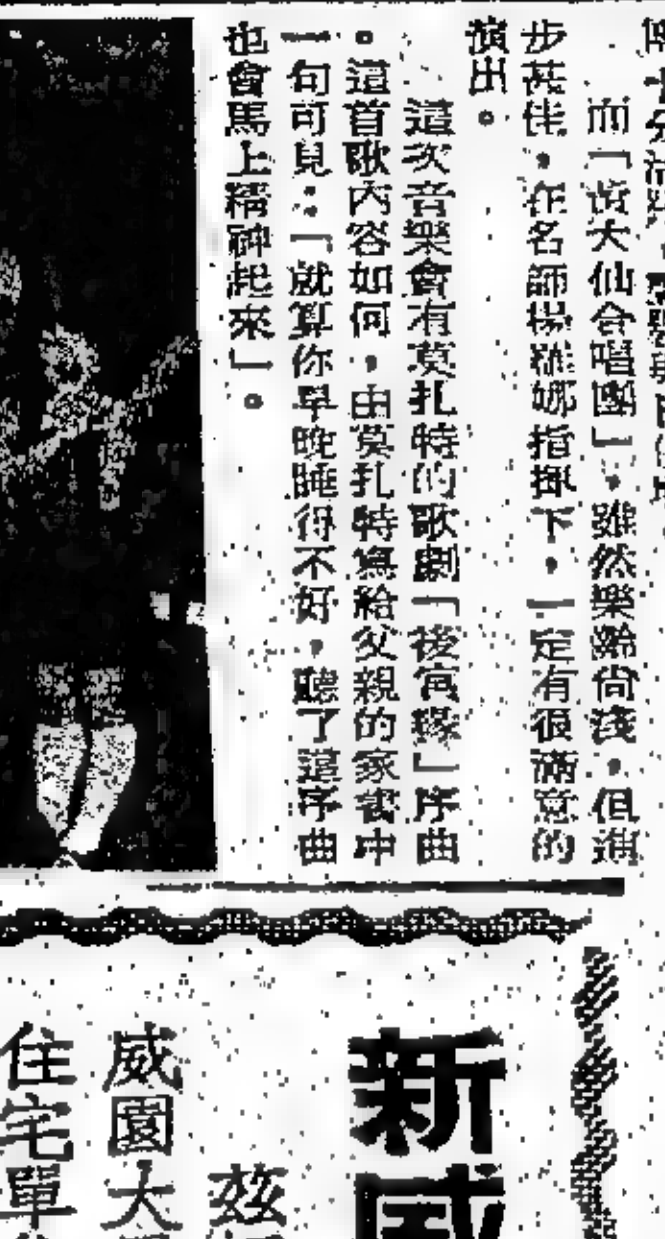 而「黃大仙合唱團」，雖然樂齡尚淺，但進
步甚佳，在名師楊羅娜指揮下，一定有很滿意的
演出。
這次音樂會有莫扎特的歌劇「後宮緣」序曲
。這首歌內容如何，由莫扎特寫給父親的家書中
一句可見：「就算你早晚睡得不好，聽了這序曲
也會馬上精神起來」。
新威
茲
威園大
住宅單